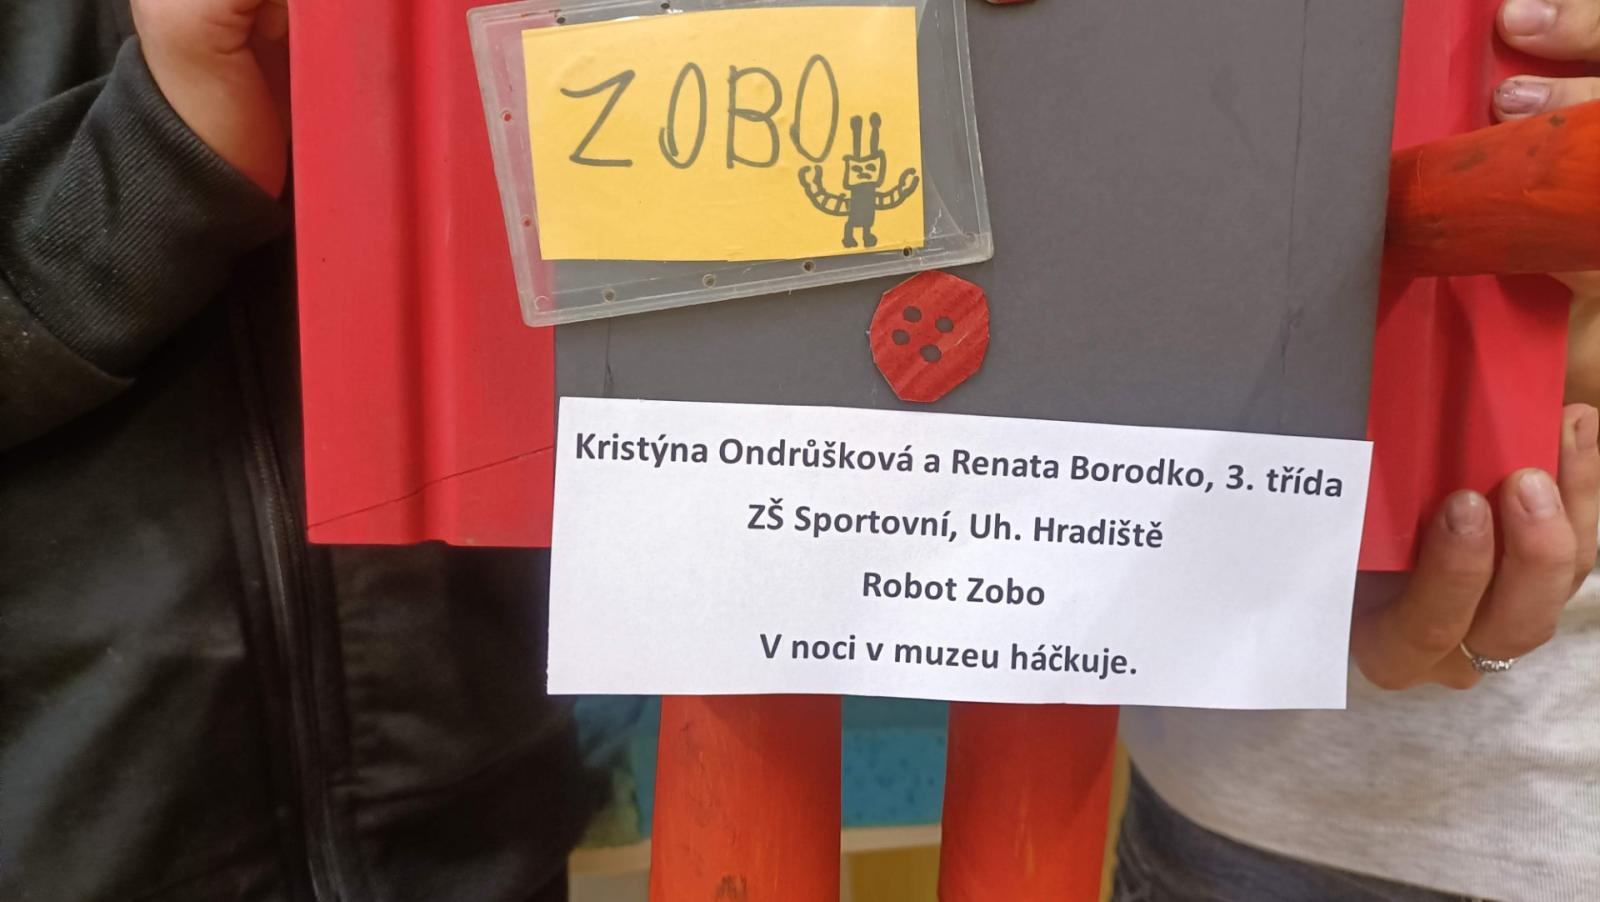 ZOBO
Kristýna Ondrůšková a Renata Borodko, 3. třída
ZŠ Sportovní, Uh. Hradiště
Robot Zobo
V noci v muzeu háčkuje.